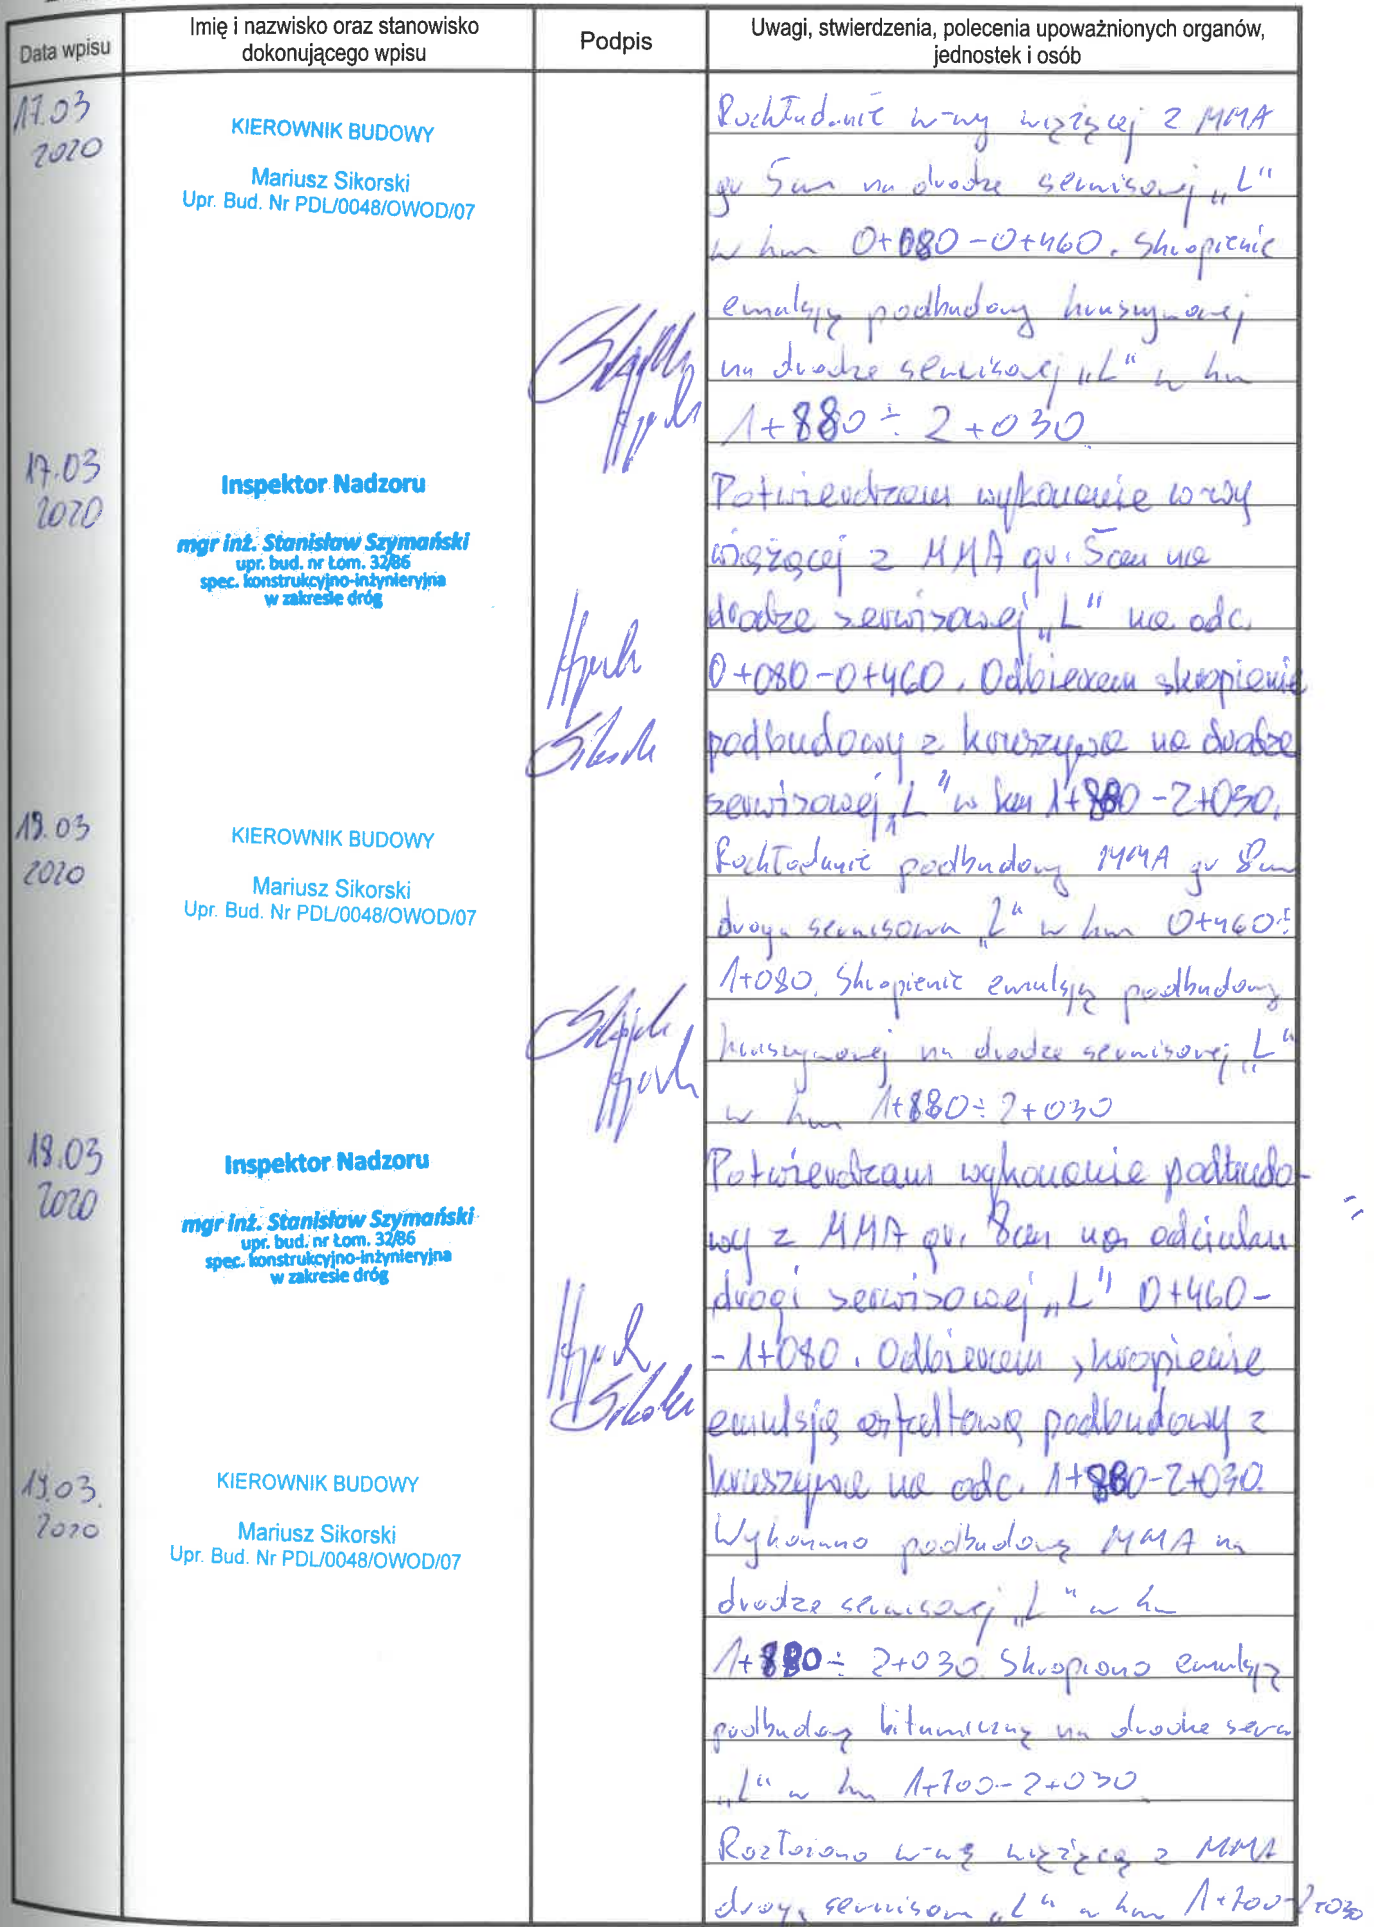 Data wpisu
Imię i nazwisko oraz stanowisko
dokonującego wpisu
Podpis
Uwagi, stwierdzenia, polecenia upoważnionych organów,
jednostek i osób
17.03
2020
KIEROWNIK BUDOWY
Mariusz Sikorski
Upr. Bud. Nr PDL/0048/OWOD/07
Rozkładanie w-wy wiążącej z MMA
gr 5cm na drodze serwisowej „L"
w km 0+080-0+460. Skropienie
emulsją podbudowy kruszynowej
na drodze serwisowej „L" w km
1+880 ÷ 2+030
17.03
2020
Inspektor Nadzoru
mgr inż. Stanisław Szymański
upr. bud. nr Łom. 32/86
spec. konstrukcyjno-inżynieryjna
w zakresie dróg
Potwierdzam wykonanie w-wy
wiążącej z MMA gr. 5cm na
drodze serwisowej „L" na odc.
0+080-0+460. Odbieram skropienie
podbudowy z kruszywa na drodze
serwisowej „L" w km 1+880-2+030.
18.03
2020
KIEROWNIK BUDOWY
Mariusz Sikorski
Upr. Bud. Nr PDL/0048/OWOD/07
Rozkładanie podbudowy MMA gr 8cm
droga serwisowa „L" w km 0+460÷
1+080. Skropienie emulsją podbudowy
kruszynowej na drodze serwisowej „L"
w km 1+880÷2+030
18.03
2020
Inspektor Nadzoru
mgr inż. Stanisław Szymański
upr. bud. nr Łom. 32/86
spec. konstrukcyjno-inżynieryjna
w zakresie dróg
Potwierdzam wykonanie podbudo-
wy z MMA gr. 8cm na odcinku
drogi serwisowej „L" 0+460-
-1+080. Odbieram skropienie
emulsją asfaltową podbudowy z
kruszywa na odc. 1+880-2+030.
19.03.
2020
KIEROWNIK BUDOWY
Mariusz Sikorski
Upr. Bud. Nr PDL/0048/OWOD/07
Wykonano podbudowę MMA na
drodze serwisowej „L" w km
1+880÷ 2+030. Skropiono emulsją
podbudowę bitumiczną na drodze serw
„L" w km 1+700-2+030
Rozłożono w-wę wiążącą z MMA
droga serwisowa „L" w km 1+700-2+030